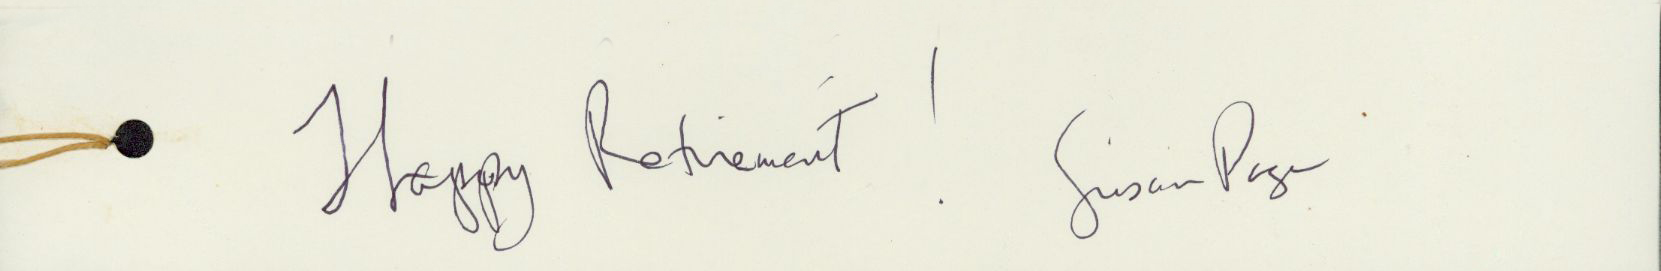 Happy Retirement! Susan Page